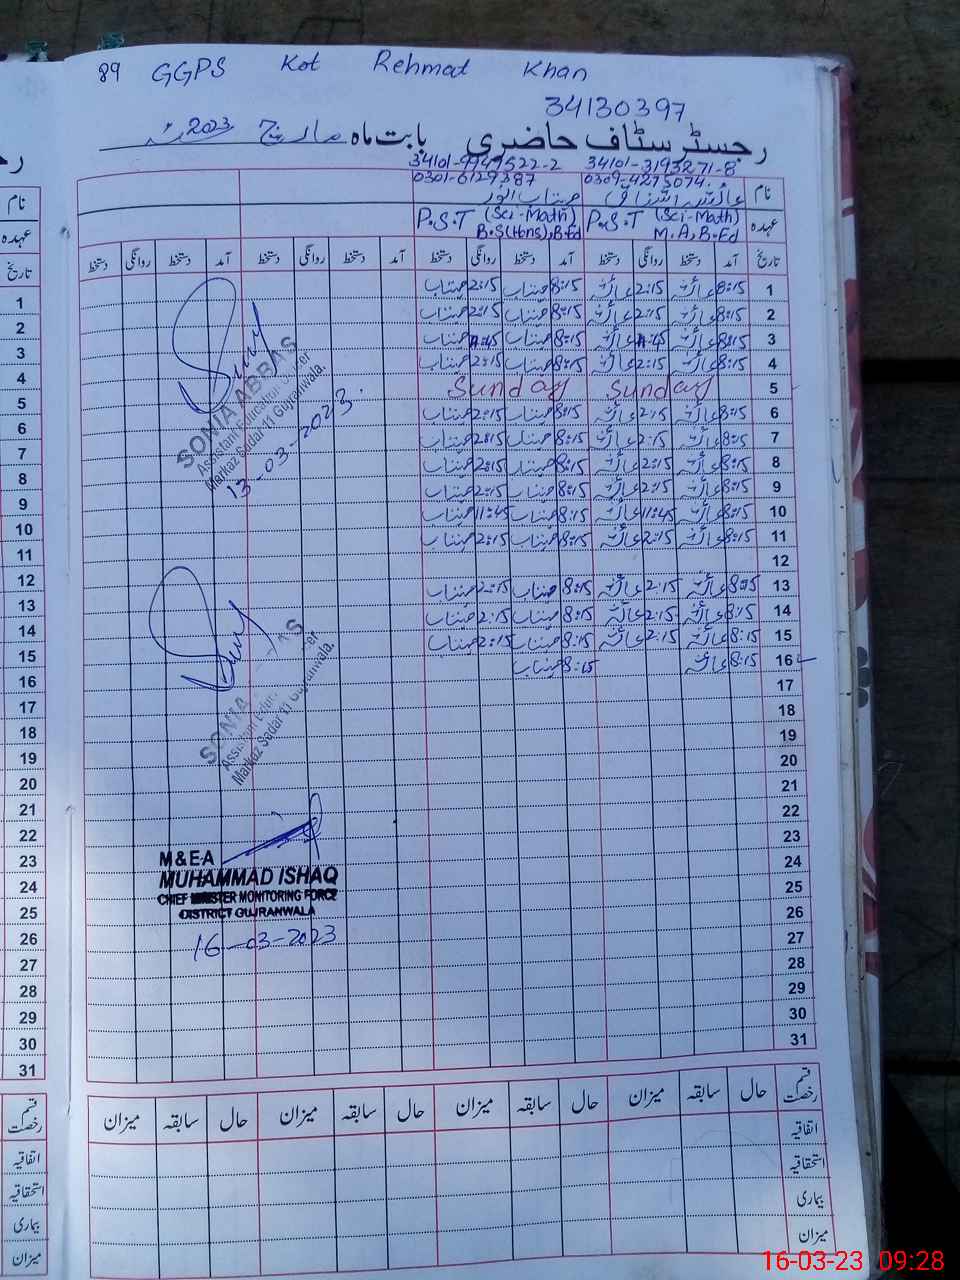 89 GGPS Kot Rehmat Khan
34130397
رجسٹر سٹاف حاضری بابت ماہ مارچ 2023
34101-3193271-8
0309-4275074
0301-6129387
نام
عہدہ P.S.T (Sci-Math) M.A,B.Ed P.S.T (Sci-Math) B.S(Hons),B.Ed
تاریخ آمد دستخط روانگی دستخط آمد دستخط روانگی دستخط آمد دستخط روانگی دستخط آمد دستخط روانگی دستخط
1 8:15 عائشہ 2:15 عائشہ 8:15 2:15
2 8:15 عائشہ 2:15 عائشہ 8:15 2:15
3 8:15 عائشہ عائشہ 8:15
4 8:15 عائشہ 2:15 عائشہ 8:15 2:15
5 Sunday Sunday
6 8:15 عائشہ 2:15 عائشہ 8:15 2:15
7 8:15 عائشہ 2:15 عائشہ 8:15 2:15
8 8:15 عائشہ 2:15 عائشہ 8:15 2:15
9 8:15 عائشہ 2:15 عائشہ 8:15 2:15
10 8:15 عائشہ 11:45 عائشہ 8:15 11:45
11 8:15 عائشہ 2:15 عائشہ 8:15 2:15
12
13 8:15 عائشہ 2:15 عائشہ 8:15 2:15
14 8:15 عائشہ 2:15 عائشہ 8:15 2:15
15 8:15 عائشہ 2:15 عائشہ 8:15 2:15
16 8:15 عائشہ 8:15
17
18
19
20
21
22
23
24
25
26
27
28
29
30
31
SONIA ABBAS
Assistant Education Officer
Markaz Sadar 11 Gujranwala.
13-03-2023.
SONIA
Assistant
Markaz Sadar 11 Gujranwala.
M&EA
MUHAMMAD ISHAQ
CHIEF MINISTER MONITORING FORCE
DISTRICT GUJRANWALA
16-03-2023
قسم رخصت حال سابقہ میزان حال سابقہ میزان حال سابقہ میزان حال سابقہ میزان
اتفاقیہ
استحقاقیہ
بیماری
میزان
نام
عہدہ
تاریخ
1
2
3
4
5
6
7
8
9
10
11
12
13
14
15
16
17
18
19
20
21
22
23
24
25
26
27
28
29
30
31
قسم رخصت
اتفاقیہ
استحقاقیہ
بیماری
میزان
16-03-23 09:28